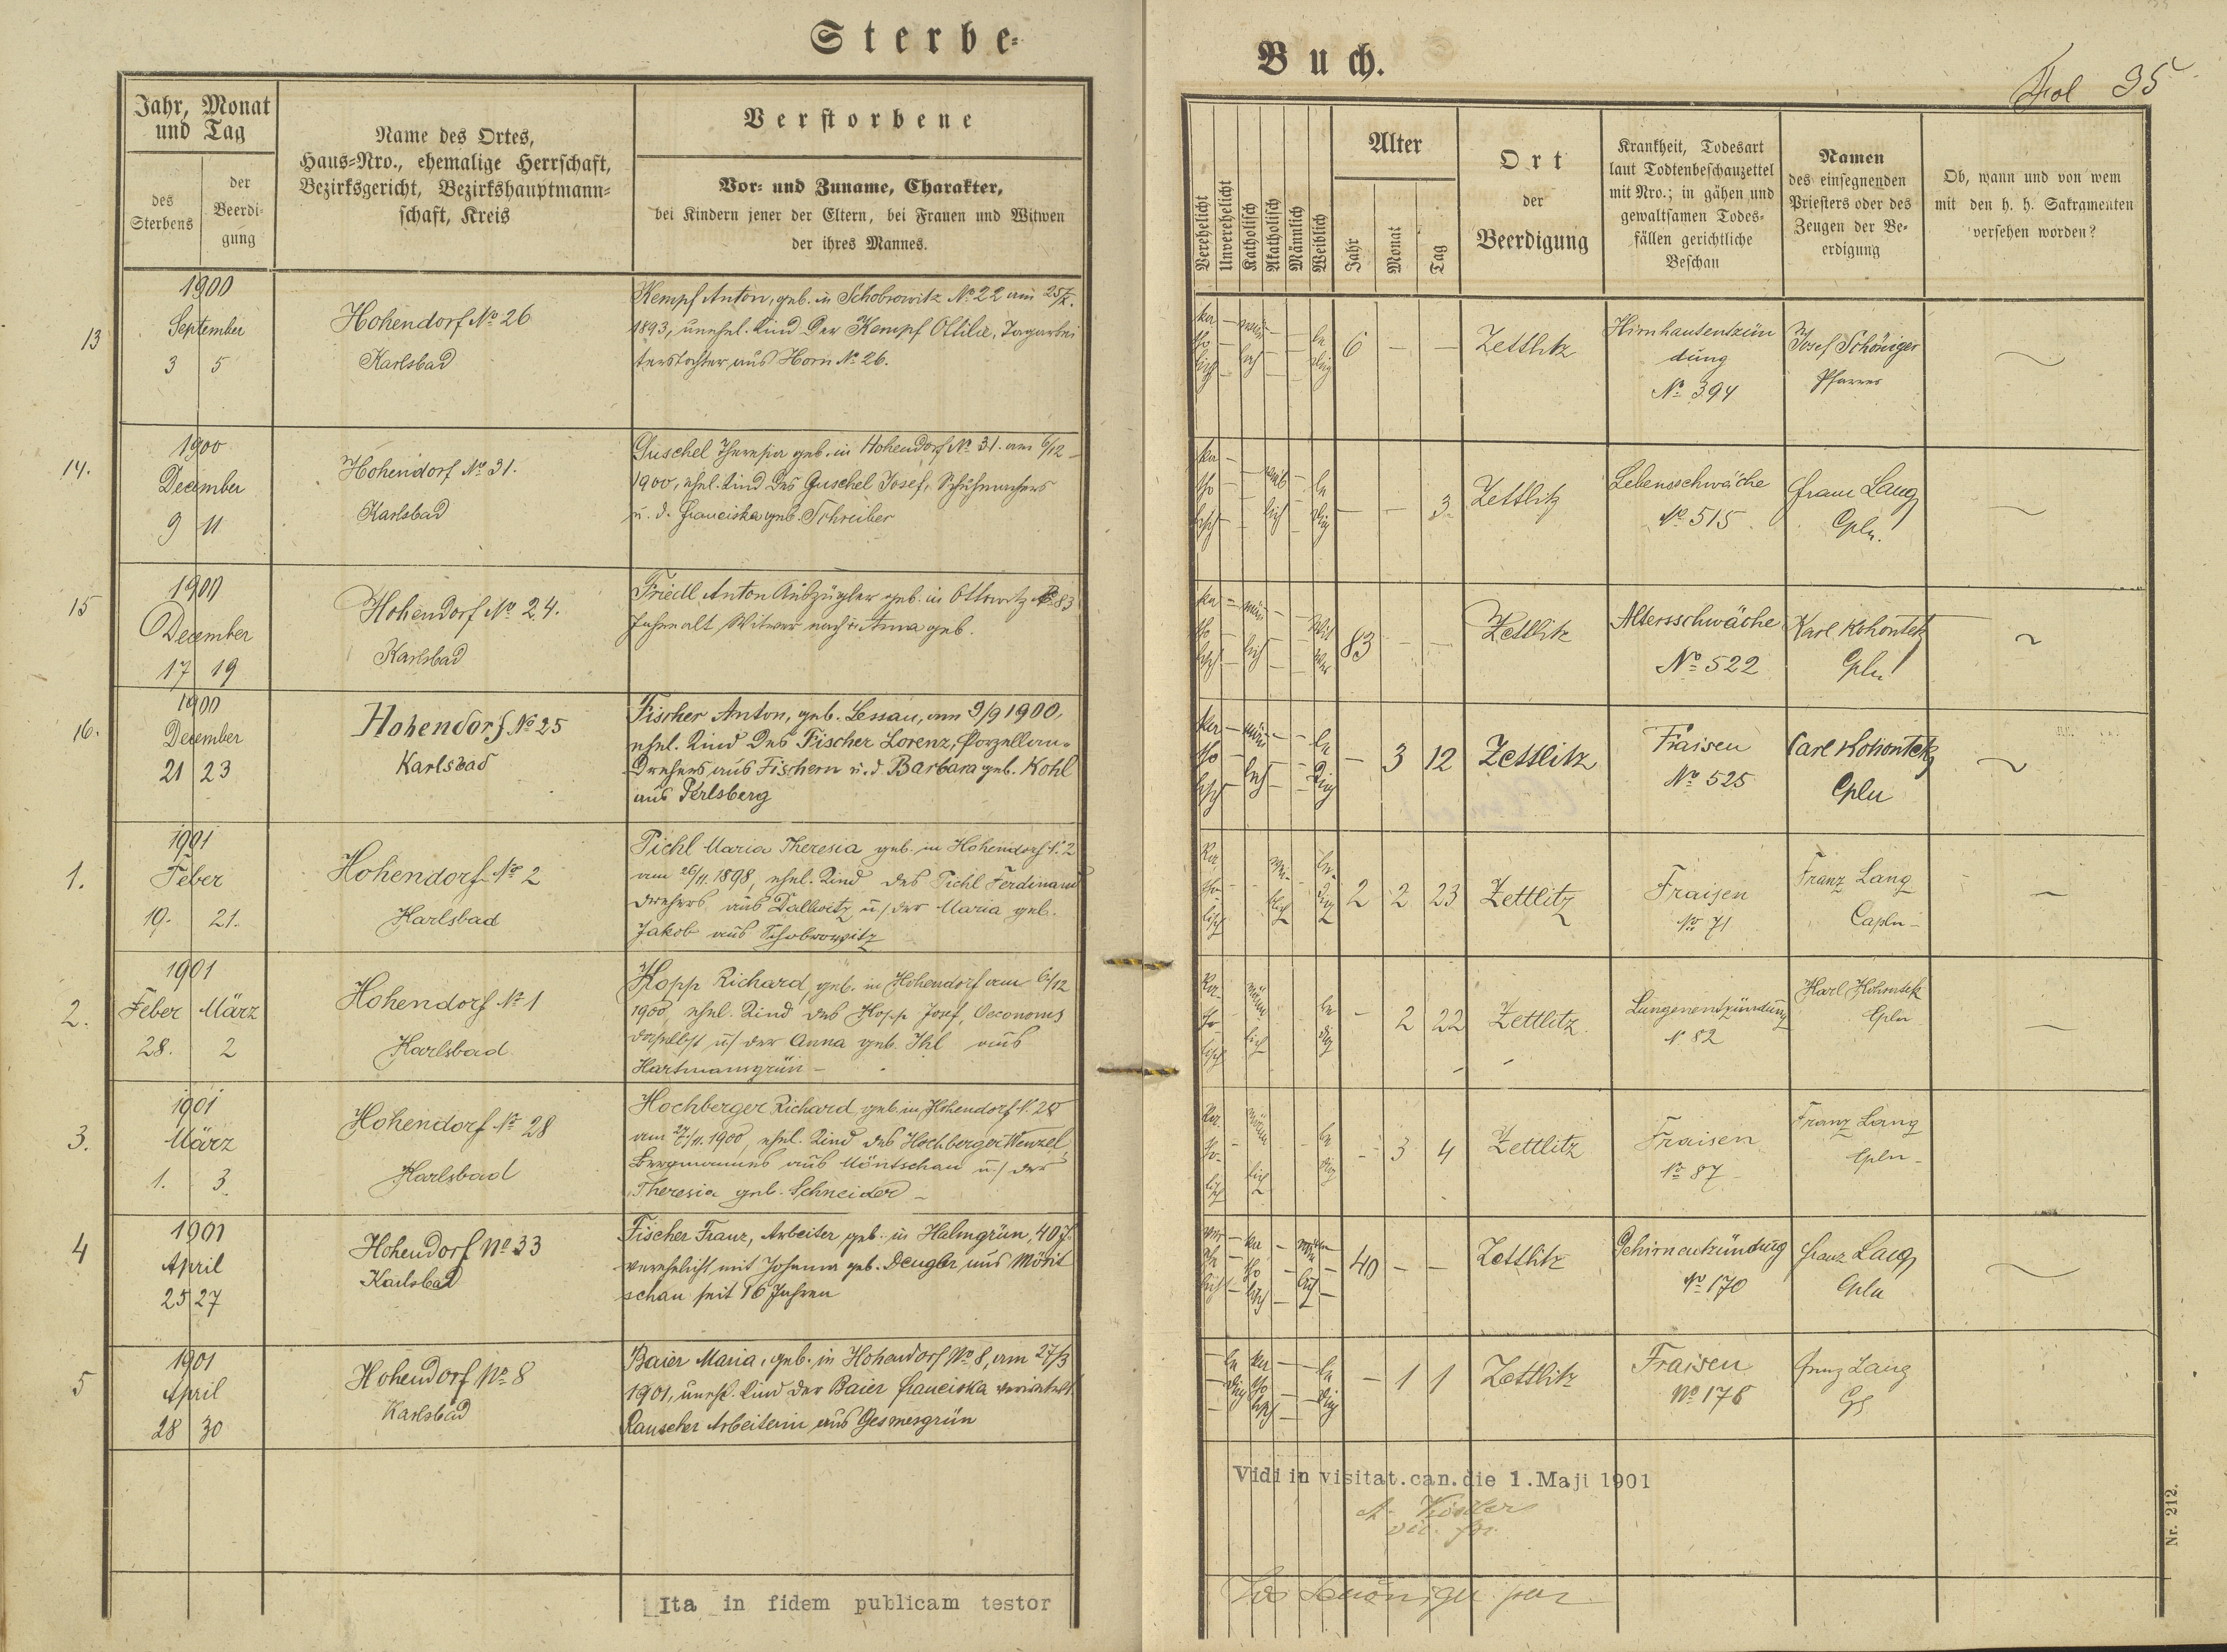 Sterbe-
Jahr, Monat
und Tag
des
Sterbens
der
Beerdi-
gung
Name des Ortes,
Haus-Nro., ehemalige Herrschaft,
Bezirksgericht, Bezirkshauptmann-
schaft, Kreis
Verstorbene
Vor- und Zuname, Charakter,
bei Kindern jener der Eltern, bei Frauen und Witwen
der ihres Mannes.
13
1900
September
3 5
Hohendorf No 26
Karlsbad
Kempf Anton, geb. in Schobrowitz No 22 am
1893, unehel. Kind der Kempf Ottilie, Tagarbei
terstochter, aus Horn No 26.
14.
1900
December
9 11
Hohendorf No 31.
Karlsbad
Guschel Theresia geb. in Hohendorf No 31. am 6/12
1900, ehel. Kind des Guschel Josef, Schuhmachers
u. d. Franciska geb. Schreiber
15
1900
December
17 19
Hohendorf No 24.
Karlsbad
Friedl Anton Auszügler geb. in Ottowitz 83
Jahre alt, Witwer nach Anna geb.
16.
1900
December
21 23
Hohendorf No 25
Karlsbad
Fischer Anton, geb. Lessau, am 9/9 1900,
ehel. Kind des Fischer Lorenz, Porzellan-
Drehers aus Fischern u. d. Barbara geb. Kohl
aus Perlsberg
1.
1901
Feber
19. 21.
Hohendorf No 2
Karlsbad
Pichl Maria Theresia geb. in Hohendorf N. 2
am 26/11. 1898, ehel. Kind des Pichl Ferdinand
Drehers aus Dallwitz u/ der Maria geb.
Jakob aus Schobrowitz
2.
1901
Feber März
28. 2
Hohendorf No 1
Karlsbad
Hopp Richard, geb. in Hohendorf am 6/12
1900, ehel. Kind des Hopp Josef, Oeconoms
daselbst u/ der Anna geb. Ihl aus
Hartmansgrün -
3.
1901
März
1. 3.
Hohendorf No 28
Karlsbad
Hochberger Richard, geb. in Hohendorf N. 28
am 27/11. 1900, ehel. Kind des Hochberger Wenzel,
Bergmannes aus Möritschau u/ der
Theresia geb. Schneider -
4
1901
April
25 27
Hohendorf No 33
Karlsbad
Fischer Franz, Arbeiter geb. in Halmgrün, 40 J.
verehelicht mit Johanna geb. Deugler aus Mörit
schau seit 16 Jahren
5
1901
April
28 30
Hohendorf No 8
Karlsbad
Baier Maria, geb. in Hohendorf No 8, am 27/3
1901, unehel. Kind der Baier Franciska
Rauscher Arbeiterin aus Gesmesgrün
Ita in fidem publicam testor
Buch.
Fol 95
Verehelicht
Unverehelicht
Katholisch
Akatholisch
Männlich
Weiblich
Alter
Jahr
Monat
Tag
Ort
der
Beerdigung
Krankheit, Todesart
laut Todtenbeschauzettel
mit Nro.; in gähen und
gewaltsamen Todes-
fällen gerichtliche
Beschau
Namen
des einsegnenden
Priesters oder des
Zeugen der Be-
erdigung
Ob, wann und von wem
mit den h. h. Sakramenten
versehen worden?
katholisch männlich ledig 6 - - Zettlitz
Hirnhautentzün
dung
No 394
Josef Schöniger
Pfarrer
katholisch weiblich ledig - - 3 Zettlitz
Lebensschwäche
No 515
Franz Lang
Cpln.
katholisch männlich Witwer 83 - - Zettlitz
Altersschwäche
No 522
Karl Kohontek
Cpln
katholisch männlich ledig - 3 12 Zettlitz
Fraisen
No 525
Carl Kohontek
Cpln
katholisch weiblich ledig 2 2 23 Zettlitz
Fraisen
No 71
Franz Lang
Capln -
katholisch männlich ledig - 2 22 Zettlitz
Lungenentzündung
N. 82
Karl Kohontek
Cpln
katholisch männlich ledig - 3 4 Zettlitz
Fraisen
No 87
Franz Lang
Cpln -
verehelicht katholisch männlich 40 - - Zettlitz
Gehirnentzündung
No 170
Franz Lang
Cpln
ledig katholisch ledig - 1 1 Zettlitz
Fraisen
No 178
Franz Lang
Vidi in visitat.can.die 1.Maji 1901
vic. for.
Nr. 212.